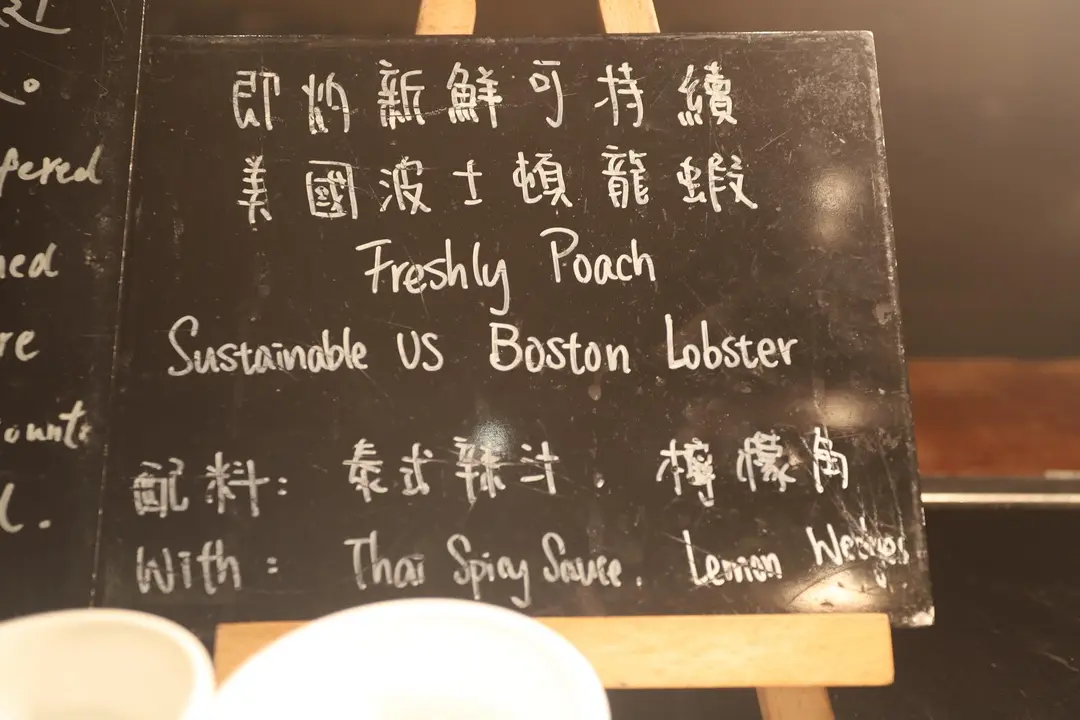 即灼新鮮可持續
美國波士頓龍蝦
Freshly Poach
Sustainable US Boston Lobster
配料: 泰式辣汁. 檸檬角
With: Thai Spicy Sauce. Lemon Wedges